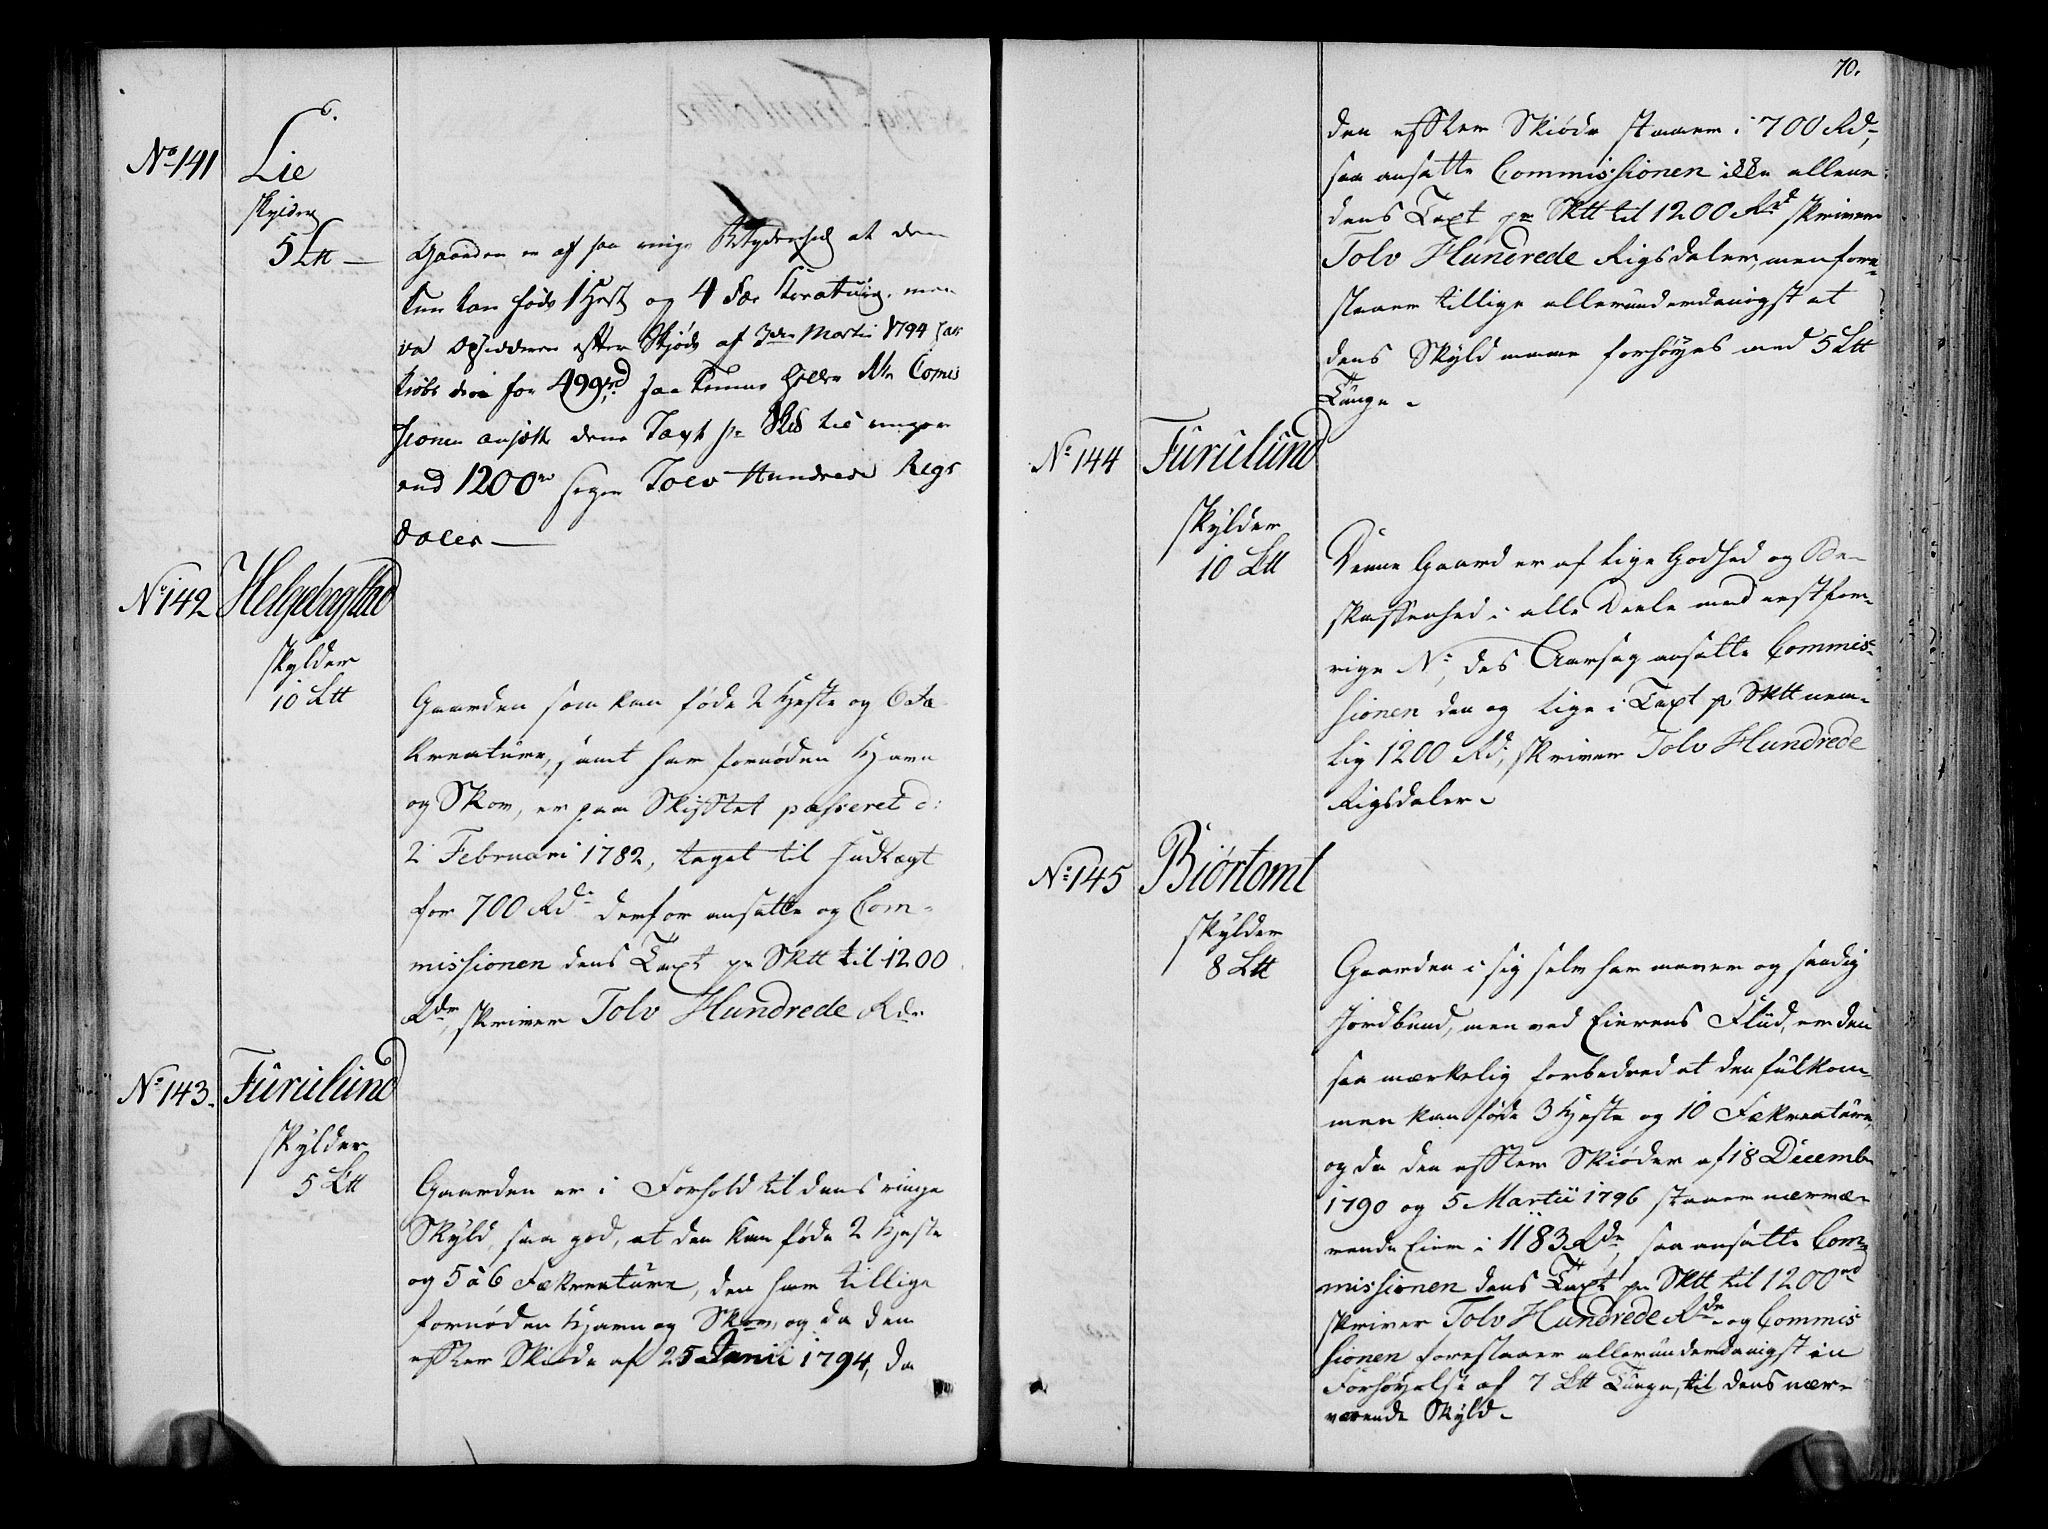 No 141
Lie
skylder
5 Ltt
Gaarden er af saa ringe Betydenhed at den
kun kan føde 1 Hest og 4 Fæe Kreatuir, men
da Opsidderen efter Skjøde af 3die Martii 1794 har
kiøbt den for 499 rd saa kunne heller ikke Comis
sionen ansætte dens Taxt pr Sktt til ringere
end 1200 rd siger Tolv Hundrede Rigs
daler
No 142
Helgebogstad
skylder
10 Ltt
Gaarden som kan føde 2 Heste og 6 Fæ
Kreature, samt har fornøden Havn
og Skov, er paa Skiftet passeret d:
2 Februari 1782, taget til Indtægt
for 700 Rd. derfor ansætte og Com-
missionen dens Taxt pr Sktt til 1200
Rdr, skriver Tolv Hundrede Rdr
No 143.
Furulund
skylder
5 Ltt
Gaarden er i Forhold til dens ringe
Skyld saa god, at den kan føde 2 Heste
og 5 à 6 Fækreature, den har tillige
fornøden Havn og Skov, og da den
efter Skiøde af 25 Junii 1794, da
70.
den efter Skiøde staaer i 700 Rd,
saa ansætte Commissionen ikke allene
dens Taxt pr Sktt til 1200 Rd skriver
Tolv Hundrede Rigsdaler, men fore-
staaer tillige allerunderdanigst at
dens Skyld maae forhøyes med 5 Ltt
Tunge
No 144
Furulund
skylder
10 Ltt
Denne Gaard er af lige Godhed og Be-
skaffenhed i alle Deele med nestfor-
rige No, des Aarsag ansætte Commis-
sionen den og lige i Taxt pr Sktt nem-
lig 1200 Rd, skriver Tolv Hundrede
Rigsdaler
No 145
Biørtomt
skylder
8 Ltt
Gaarden i sig selv har maver og sandig
Jordbund, men ved Eierens Fliid, er den
saa mærkelig forbedred at den fulkom-
men kan føde 3 Heste og 10 Fækreature,
og da den efter Skiøder af 18 Decembr
1790 og 5 Martii 1796 staaer nærvæ-
rende Eier i 1183 Rdr, saa ansætte Com-
missionen dens Taxt pr Sktt til 1200 rd
skriver Tolv Hundrede Rdr og Commis
sionen forestaaer allerunderdanigst en
Forhøyelse af 7 Ltt Tunge, til dens nær-
værende Skyld